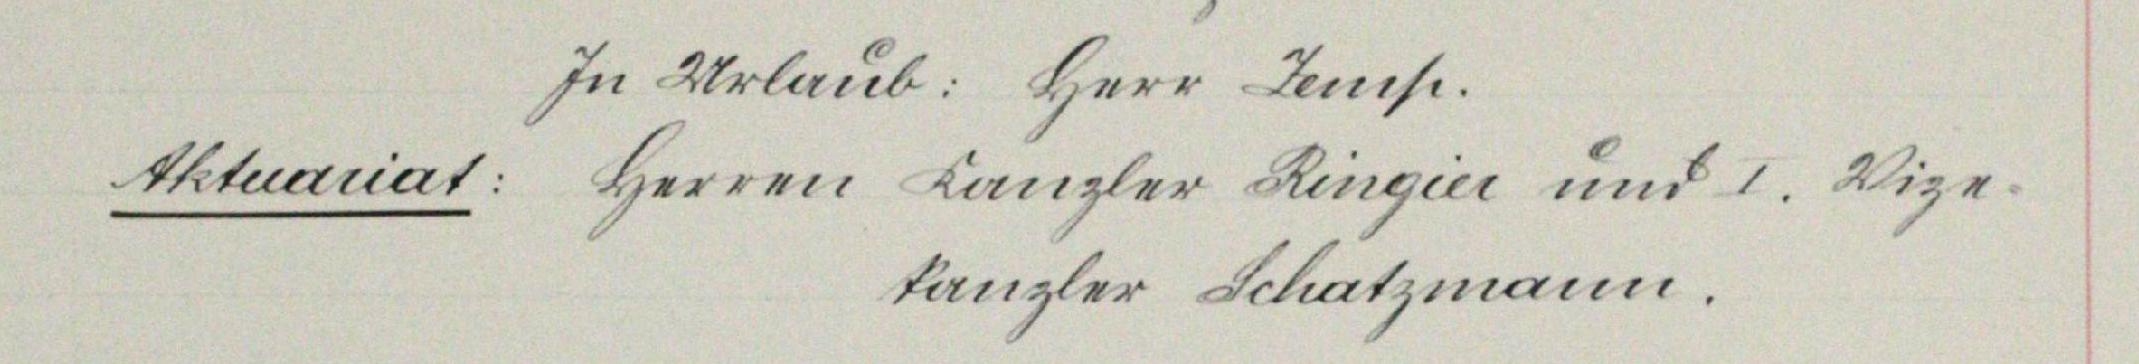 In Urlaub: Herr Zemp.
Aktuariat: Herren Kanzler Ringier und I. Vize-
kanzler Schatzmann.